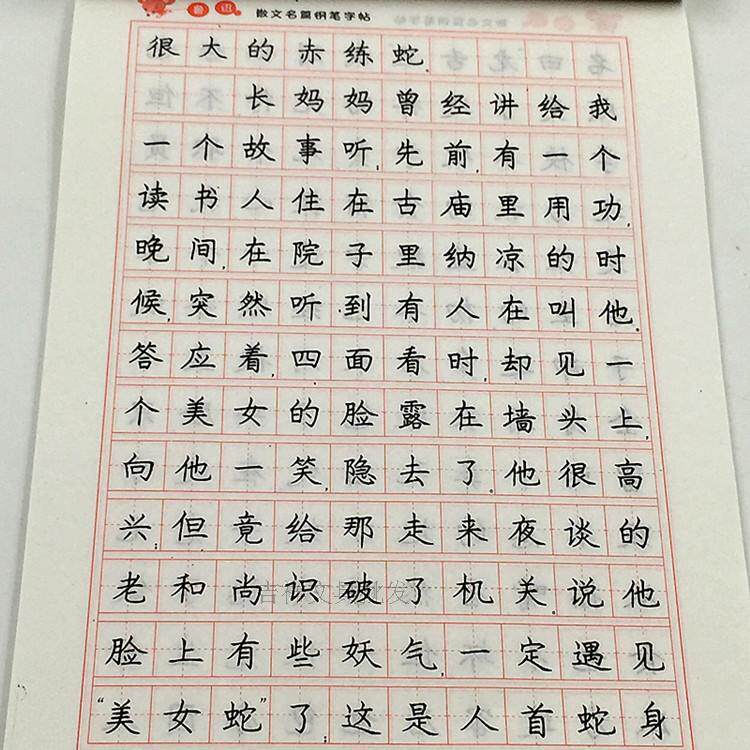 鲁迅 散文名篇钢笔字帖
很大的赤练蛇.
长妈妈曾经讲给我
一个故事听,先前,有一个
读书人住在古庙里用功,
晚间,在院子里纳凉的时
候,突然听到有人在叫他.
答应着,四面看时,却见一
个美女的脸露在墙头上,
向他一笑,隐去了.他很高
兴;但竟给那走来夜谈的
老和尚识破了机关.说他
脸上有些妖气,一定遇见
“美女蛇”了;这是人首蛇身